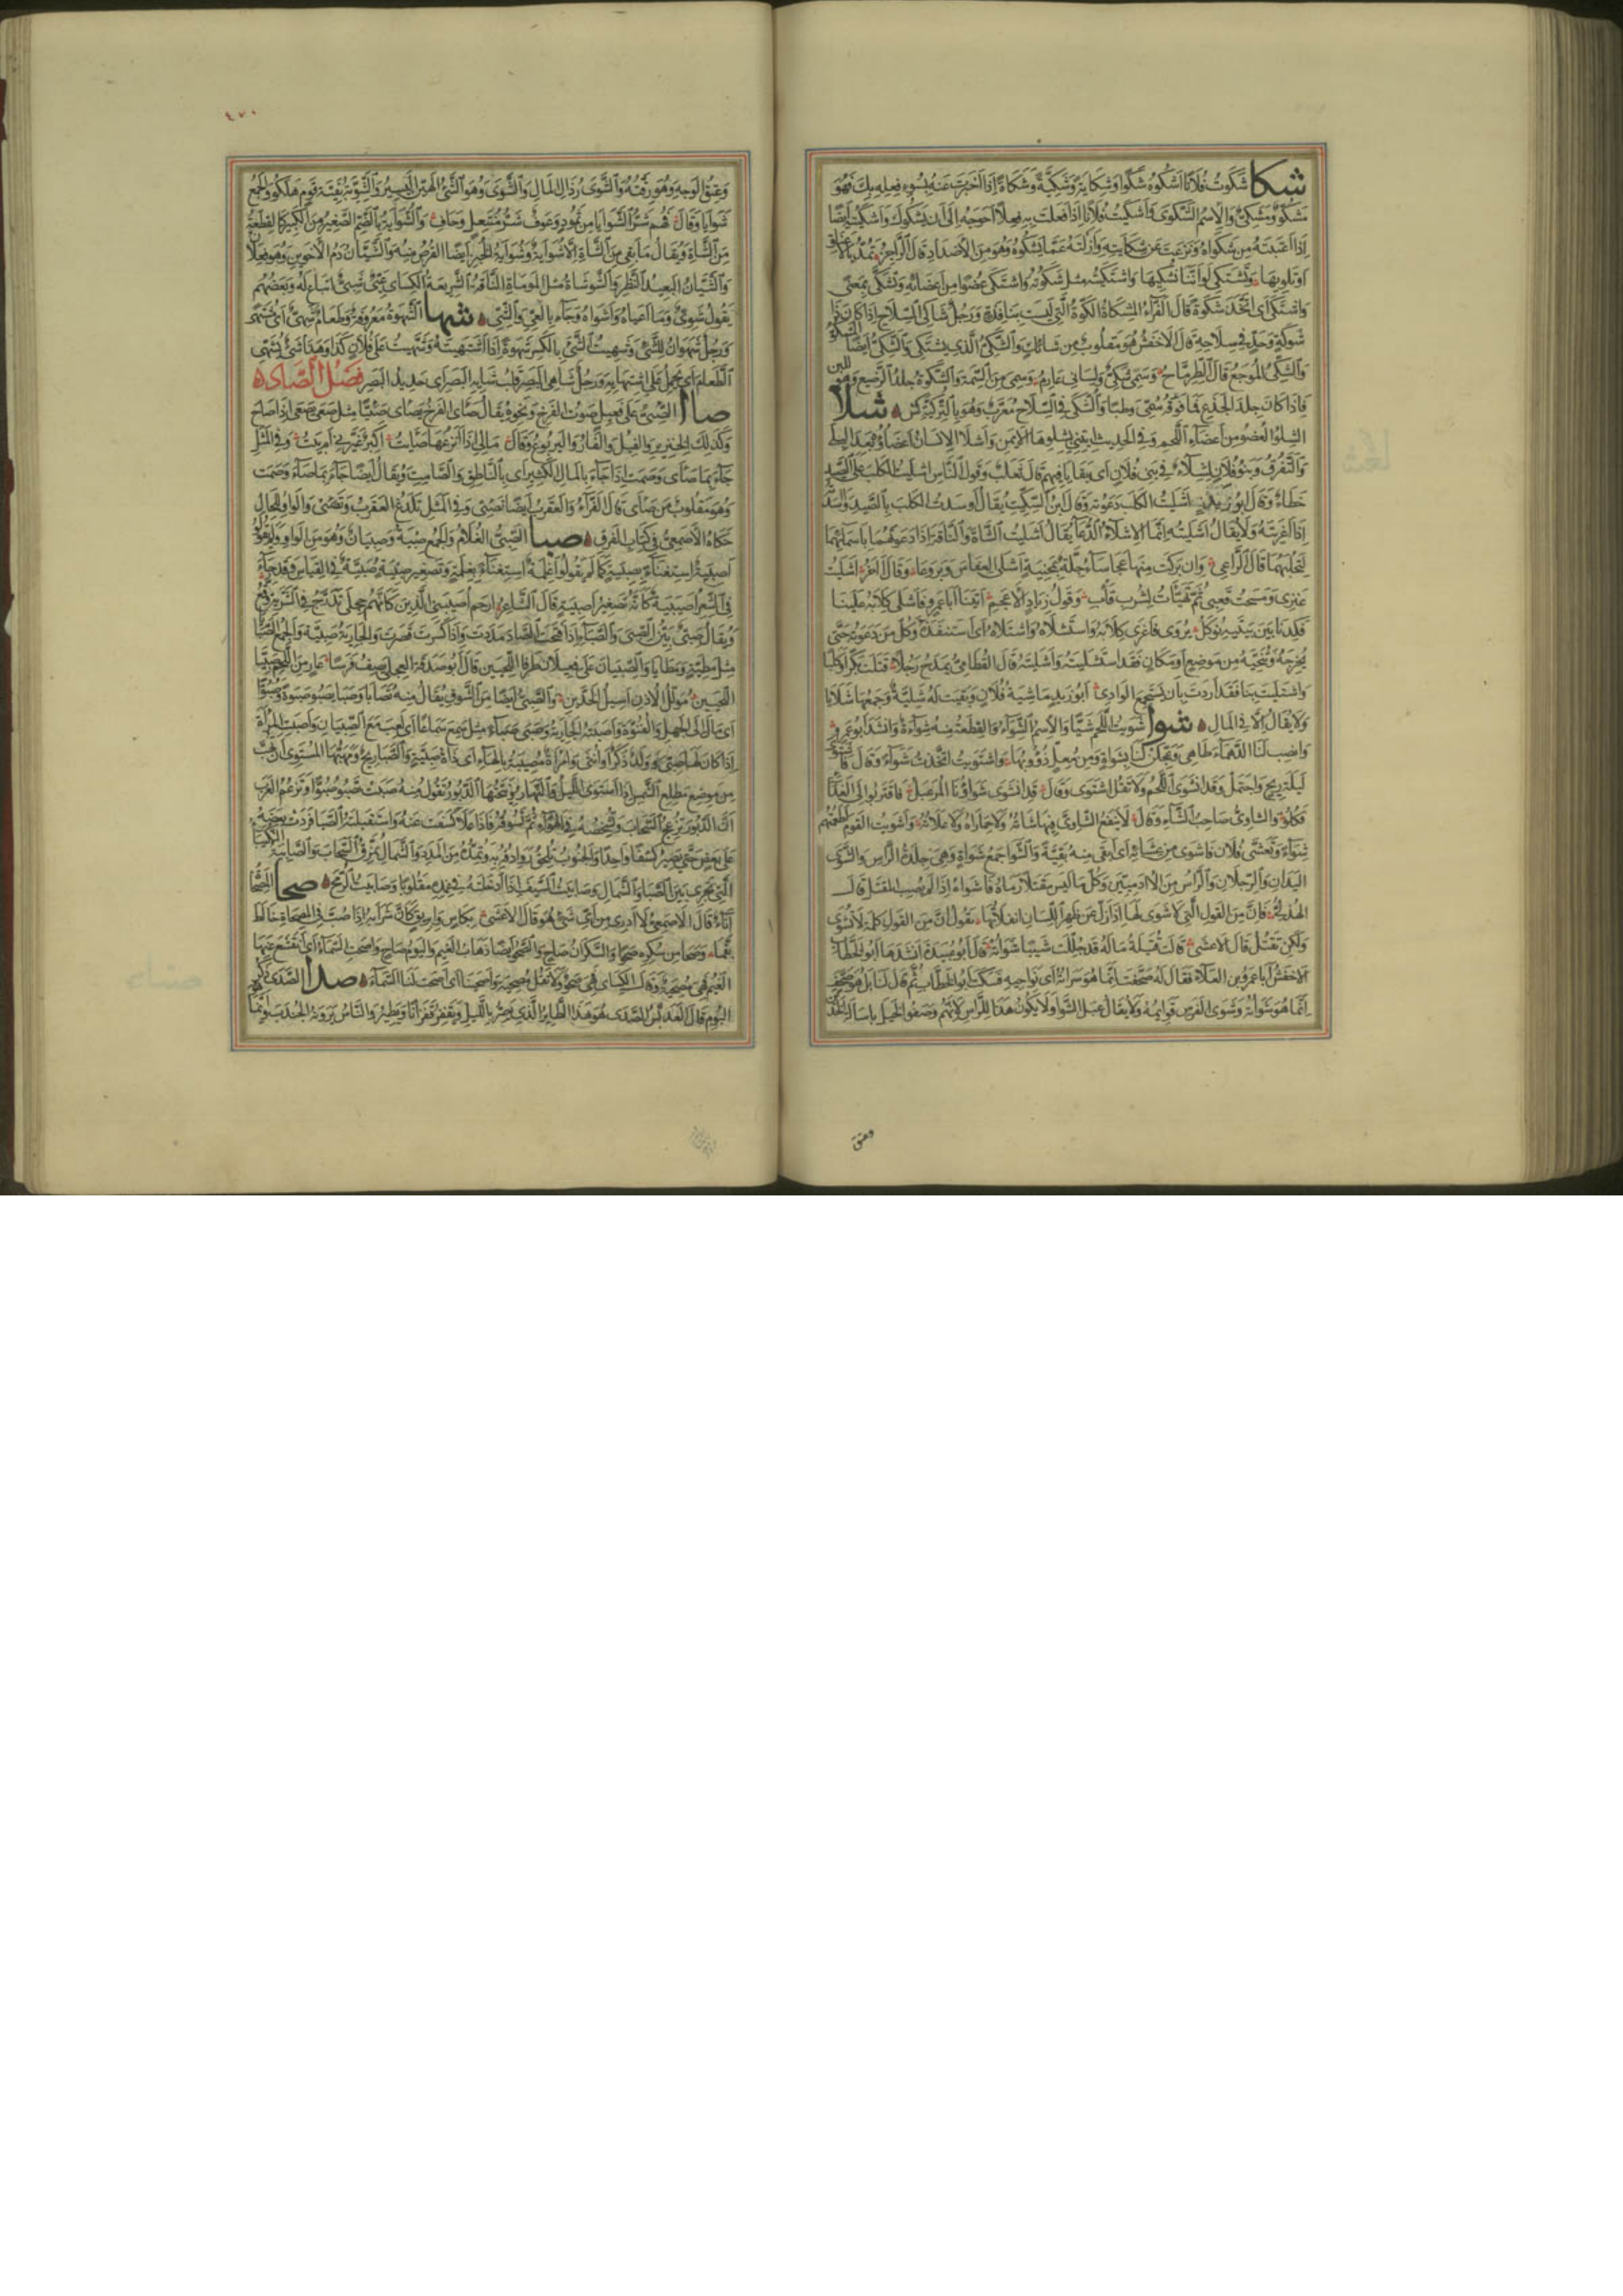 شكا شَكَوْتُ فُلَانًا اَشْكُوهُ شَكْوًا وَشِكَايَةً وَشَكِيَّةً وَشَكَاةً اِذَا اَخْبَرْتَ عَنْهُ بِسُوءِ فِعْلِهِ بِكَ فَهُوَ
مَشْكُوٌّ وَمَشْكِيٌّ وَالْاِسْمُ الشَّكْوَى وَاَشْكَيْتُ فُلَانًا اِذَا فَعَلْتَ بِهِ فِعْلًا اَحْوَجَهُ اِلَى اَنْ يَشْكُوَكَ وَاَشْكَيْتُهُ اَيْضًا
اِذَا اَعْتَبْتَهُ مِنْ شَكْوَاهُ وَنَزَعْتَ عَنْ شِكَايَتِهِ وَاَزَلْتَهُ عَمَّا يَشْكُوهُ وَهُوَ مِنَ الْاَضْدَادِ قَالَ الرَّاجِزُ تَمُدُّ بِالْاَعْنَاقِ
اَوْ تَلْوِيهَا وَتَشْتَكِي لَوْ اَنَّنَا نُشْكِيهَا وَاشْتَكَيْتُهُ مِثْلُ شَكَوْتُهُ وَاشْتَكَى عُضْوًا مِنْ اَعْضَائِهِ وَتَشَكَّى بِمَعْنًى
وَاشْتَكَى اَيِ اتَّخَذَ شَكْوَةً قَالَ الْفَرَّاءُ الْمِشْكَاةُ الْكُوَّةُ الَّتِي لَيْسَتْ بِنَافِذَةٍ وَرَجُلٌ شَاكِي السِّلَاحِ اِذَا كَانَ ذَا
شَوْكَةٍ وَحَدٍّ فِي سِلَاحِهِ قَالَ الْاَخْفَشُ هُوَ مَقْلُوبٌ مِنْ شَائِكٍ وَالشَّكِيُّ الَّذِي يَشْتَكِي وَالشَّكِيُّ اَيْضًا الْمَشْكُوُّ
وَالشَّكِيُّ الْمُوجَعُ قَالَ الطِّرِمَّاحُ وَسْمِي شَكِيٌّ وَلِسَانِي عَارِمٌ وَسْمِي مِنَ السِّمَةِ وَالشَّكْوَةُ جِلْدُ الرَّضِيعِ وَهُوَ لِلَّبَنِ
فَاِذَا كَانَ جِلْدَ الْجَذَعِ فَمَا فَوْقَهُ سُمِّيَ وَطْبًا وَالشَّكِّيُّ فِي السِّلَاحِ مُعَرَّبٌ وَهُوَ بِالتُّرْكِيَّةِ كش شلا
الشِّلْوُ الْعُضْوُ مِنْ اَعْضَاءِ اللَّحْمِ وَفِي الْحَدِيثِ ائْتِنِي بِشِلْوِهَا الْاَيْمَنِ وَاَشْلَاءُ الْاِنْسَانِ اَعْضَاؤُهُ بَعْدَ الْبِلَى
وَالتَّفَرُّقِ وَبَنُو فُلَانٍ اَشْلَاءٌ فِي بَنِي فُلَانٍ اَيْ بَقَايَا فِيهِمْ قَالَ ثَعْلَبٌ وَقَوْلُ النَّاسِ اَشْلَيْتُ الْكَلْبَ عَلَى الصَّيْدِ
خَطَاءٌ وَقَالَ اَبُو زَيْدٍ اَشْلَيْتُ الْكَلْبَ دَعَوْتُهُ وَقَالَ ابْنُ السِّكِّيتِ يُقَالُ اَوْسَدْتُ الْكَلْبَ بِالصَّيْدِ وَآسَدْتُهُ
اِذَا اَغْرَيْتَهُ وَلَا يُقَالُ اَشْلَيْتُهُ اِنَّمَا الْاِشْلَاءُ الدُّعَاءُ يُقَالُ اَشْلَيْتُ الشَّاةَ وَالنَّاقَةَ اِذَا دَعَوْتَهُمَا بِاَسْمَائِهِمَا
لِتَحْلُبَهُمَا قَالَ الرَّاعِي وَاِنْ بَرَكَتْ مِنْهَا عَجَاسَاءُ جِلَّةٌ بِمَحْنِيَةٍ اَشْلَى الْعِفَاسَ وَبَرْوَعَا وَقَالَ آخَرُ اَشْلَيْتُ
عَنْزِي وَمَسَحْتُ قَعْبِي ثُمَّ تَهَيَّأْتُ لِشُرْبِ قَأْبِ وَقَوْلُ زِيَادٍ الْاَعْجَمِ اَتَيْنَا اَبَا عَمْرٍو فَاَشْلَى كِلَابَهُ عَلَيْنَا
فَكِدْنَا بَيْنَ بَيْتَيْهِ نُؤْكَلُ يُرْوَى فَاَغْرَى كِلَابَهُ وَاسْتَشْلَاهُ وَاشْتَلَاهُ اَيِ اسْتَنْقَذَهُ وَكُلُّ مَنْ دَعَوْتَهُ حَتَّى
تُخْرِجَهُ وَتُنَجِّيَهُ مِنْ مَوْضِعٍ اَوْ مَكَانٍ فَقَدِ اسْتَشْلَيْتَهُ وَاشْتَلَيْتَهُ قَالَ الْقُطَامِيُّ يَمْدَحُ رَجُلًا قَتَلْتَ بَكْرًا وَكَلْبًا
وَاشْتَلَيْتَ بِنَا فَقَدْ اَرَدْتَ بِاَنْ يَسْتَجْمِعَ الْوَادِي اَبُو زَيْدٍ مَاشِيَةُ فُلَانٍ وَبَقِيَتْ لَهُ شَلِيَّةٌ وَجَمْعُهَا شَلَايَا
وَلَا يُقَالُ اِلَّا فِي الْمَالِ شوا شَوَيْتُ اللَّحْمَ شَيًّا وَالْاِسْمُ الشِّوَاءُ وَالْقِطْعَةُ مِنْهُ شِوَاءَةٌ وَانْشَدَ اَبُو عَمْرٍو
وَانْصِبْ لَنَا الدَّهْمَاءَ طَاهِي وَعَجِّلَنْ لَنَا بِشِوَاةٍ مُرْمَعِلٍّ ذُؤُوبُهَا وَاشْتَوَيْتُ اتَّخَذْتُ شِوَاءً وَقَالَ فَاشْتَوَى
لَيْلَةَ رِيحٍ وَاجْتَمَلَ وَقَدِ انْشَوَى اللَّحْمُ وَلَا تَقُلِ اشْتَوَى وَقَالَ قَدِ انْشَوَى شِوَاؤُنَا الْمُرَعْبَلُ فَاقْتَرِبُوا اِلَى الْغَدَاءِ
فَكُلُوا وَالشَّاوِيُّ صَاحِبُ الشَّاءِ وَقَالَ لَا يَنْفَعُ الشَّاوِيَّ فِيهَا شَاتُهُ وَلَا حِمَارَاهُ وَلَا عَلَاتُهُ وَاَشْوَيْتُ الْقَوْمَ اَطْعَمْتُهُمْ
شِوَاءً وَتَعَشَّى فُلَانٌ فَاَشْوَى مِنْ عَشَائِهِ اَيْ اَبْقَى مِنْهُ بَقِيَّةً وَالشَّوَى جَمْعُ شَوَاةٍ وَهِيَ جِلْدَةُ الرَّأْسِ وَالشَّوَى
الْيَدَانِ وَالرِّجْلَانِ وَالرَّأْسُ مِنَ الْآدَمِيِّينَ وَكُلُّ مَا لَيْسَ مَقْتَلًا رَمَاهُ فَاَشْوَاهُ اِذَا لَمْ يُصِبِ الْمَقْتَلَ قَالَ
الْهُذَلِيُّ فَاِنَّ مِنَ الْقَوْلِ الَّتِي لَا شَوَى لَهَا اِذَا زَلَّ عَنْ ظَهْرِ اللِّسَانِ انْفِلَاتُهَا يَقُولُ اِنَّ مِنَ الْقَوْلِ كَلِمَةً لَا تُشْوِي
وَلَكِنْ تَقْتُلُ قَالَ الْاَعْشَى قَالَتْ قُتَيْلَةُ مَا لَهُ قَدْ جُلِّلَتْ شَيْبًا شَوَاتُهُ قَالَ اَبُو عُبَيْدَةَ اَنْشَدَهَا اَبُو الْخَطَّابِ
الْاَخْفَشُ اَبَا عَمْرِو بْنَ الْعَلَاءِ فَقَالَ لَهُ صَحَّفْتَ اِنَّمَا هُوَ سَرَاتُهُ اَيْ نَوَاحِيهِ فَسَكَتَ اَبُو الْخَطَّابِ ثُمَّ قَالَ لَنَا بَلْ هُوَ صَحَّفَ
اِنَّمَا هُوَ شَوَاتُهُ وَشَوَى الْفَرَسِ قَوَائِمُهُ وَلَا يُقَالُ عَبْلُ الشَّوَى وَلَا يَكُونُ هَذَا لِلرَّأْسِ لِاَنَّهُمْ وَصَفُوا الْخَيْلَ بِاَسَالَةِ الْخَدِّ
وعتق
٤٧٠
وَعِتْقِ الْوَجْهِ وَهُوَ رِقَّتُهُ وَالشَّوَى رُذَالُ الْمَالِ وَالشَّوَى وَهُوَ الشَّيْءُ الْهَيِّنُ الْيَسِيرُ وَالشَّوِيَّةُ بَقِيَّةُ قَوْمٍ هَلَكُوا وَالْجَمْعُ
شَوَايَا وَقَالَ فَهُمْ شَرُّ الشَّوَايَا مِنْ ثَمُودٍ وَعَوْفٌ شَرُّ مُنْتَعِلٍ وَحَافِ وَالشُّوَايَةُ بِالضَّمِّ الصَّغِيرُ مِنَ الْكَبِيرِ كَالْقِطْعَةِ
مِنَ الشَّاةِ وَيُقَالُ مَا بَقِيَ مِنَ الشَّاةِ اِلَّا شُوَايَةٌ وَشُوَايَةُ الْخُبْزِ اَيْضًا الْقُرْصُ مِنْهُ وَالشَّيَّانُ دَمُ الْاَخَوَيْنِ وَهُوَ فَعْلَانُ
وَالشَّيَّانُ الْبَعِيدُ النَّظَرِ وَالشَّوْشَاةُ مِثْلُ الْمَوْمَاةِ النَّاقَةُ السَّرِيعَةُ الْكِسَائِيُّ عَيِيٌّ شَيِيٌّ اِتْبَاعٌ لَهُ وَبَعْضُهُمْ
يَقُولُ شَوِيٌّ وَمَا اَعْيَاهُ وَاَشْوَاهُ وَجَاءَ بِالْعِيِّ وَالشِّيِّ شها الشَّهْوَةُ مَعْرُوفَةٌ وَطَعَامٌ شَهِيٌّ اَيْ مُشْتَهًى
وَرَجُلٌ شَهْوَانُ لِلشَّيْءِ وَشَهِيتُ الشَّيْءَ بِالْكَسْرِ شَهْوَةً اِذَا اشْتَهَيْتَهُ وَتَشَهَّيْتُ عَلَى فُلَانٍ كَذَا وَهَذَا شَيْءٌ يُشَهِّي
الطَّعَامَ اَيْ يَحْمِلُ عَلَى اشْتِهَائِهِ وَرَجُلٌ شَاهِي الْبَصَرِ قَلْبُ شَايِهِ الْبَصَرِ اَيْ حَدِيدُ الْبَصَرِ فَصْلُ الصَّادِ
صاا الصَّئِيُّ عَلَى فَعِيلٍ صَوْتُ الْفَرْخِ وَنَحْوِهِ يُقَالُ صَأَى الْفَرْخُ يَصْأَى صَئِيًّا مِثْلُ صَعَى صَعَى اِذَا صَاحَ
وَكَذَلِكَ الْخِنْزِيرُ وَالْفِيلُ وَالْفَأْرُ وَالْيَرْبُوعُ وَقَالَ مَالِي اِذَا اَنْزِعُهَا صَأَيْتُ اَكِبَرٌ غَيَّرَنِي اَمْ بَيْتُ وَفِي الْمَثَلِ
جَاءَ بِمَا صَأَى وَصَمَتَ اِذَا جَاءَ بِالْمَالِ الْكَثِيرِ اَيْ بِالنَّاطِقِ وَالصَّامِتِ وَيُقَالُ اَيْضًا جَاءَ بِمَا صَاءَ وَصَمَتَ
وَهُوَ مَقْلُوبٌ مِنْ صَأَى قَالَ الْفَرَّاءُ وَالْعَقْرَبُ اَيْضًا تَصْئِي وَفِي الْمَثَلِ تَلْدَغُ الْعَقْرَبُ وَتَصْئِي وَالْوَاوُ لِلْحَالِ
حَكَاهُ الْاَصْمَعِيُّ فِي كِتَابِ الْفَرْقِ صبا الصَّبِيُّ الْغُلَامُ وَالْجَمْعُ صِبْيَةٌ وَصِبْيَانٌ وَهُوَ مِنَ الْوَاوِ وَلَمْ يَقُولُوا
اَصْبِيَةٌ اسْتِغْنَاءً بِصِبْيَةٍ كَمَا لَمْ يَقُولُوا اَغْلِمَةٌ اسْتِغْنَاءً بِغِلْمَةٍ وَتَصْغِيرُ صِبْيَةٍ صُبَيَّةٌ فِي الْقِيَاسِ وَقَدْ جَاءَ
فِي الشِّعْرِ اُصَيْبِيَةٌ كَاَنَّهُ تَصْغِيرُ اَصْبِيَةٍ قَالَ الشَّاعِرُ ارْحَمْ اُصَيْبِيَتِي الَّذِينَ كَاَنَّهُمْ حِجْلَى تَدَرَّجُ فِي الشَّرَبَّةِ وُقَّعُ
وَيُقَالُ صَبِيٌّ بَيِّنُ الصِّبَى وَالصَّبَاءِ اِذَا فَتَحْتَ الصَّادَ مَدَدْتَ وَاِذَا كَسَرْتَ قَصَرْتَ وَالْجَارِيَةُ صَبِيَّةٌ وَالْجَمْعُ الصَّبَايَا
مِثْلُ مَطِيَّةٍ وَمَطَايَا وَالصَّبِيَّانِ عَلَى فَعِيلَانِ طَرَفَا اللَّحْيَيْنِ قَالَ اَبُو صَدَقَةَ الْعِجْلِيُّ يَصِفُ فَرَسًا عَارٍ مِنَ اللَّحْمِ صَبِيَّا
اللَّحْيَيْنِ مُؤَلَّلُ الْاُذْنِ اَسِيلُ الْخَدَّيْنِ وَالصِّبَى اَيْضًا مِنَ الشَّوْقِ يُقَالُ مِنْهُ تَصَابَى وَصَبَا يَصْبُو صَبْوَةً وَصُبُوًّا
اَيْ مَالَ اِلَى الْجَهْلِ وَالْفُتُوَّةِ وَاَصْبَتْهُ الْجَارِيَةُ وَصَبِيَ صَبَاءً مِثْلُ سَمِعَ سَمَاعًا اَيْ لَعِبَ مَعَ الصِّبْيَانِ وَاَصْبَتِ الْمَرْأَةُ
اِذَا كَانَ لَهَا صَبِيٌّ وَوَلَدٌ ذَكَرًا وَاُنْثَى وَامْرَأَةٌ مُصْبِيَةٌ بِالْهَاءِ اَيْ ذَاتُ صِبْيَةٍ وَالصَّبَا رِيحٌ وَمَهَبُّهَا الْمُسْتَوِي اَنْ تَهُبَّ
مِنْ مَوْضِعِ مَطْلِعِ الشَّمْسِ اِذَا اسْتَوَى اللَّيْلُ وَالنَّهَارُ وَنَيِّحَتُهَا الدَّبُورُ تَقُولُ مِنْهُ صَبَتْ تَصْبُو صُبُوًّا وَتَزْعُمُ الْعَرَبُ
اَنَّ الدَّبُورَ تُزْعِجُ السَّحَابَ وَتُشْخِصُهُ فِي الْهَوَاءِ ثُمَّ تَسُوقُهُ فَاِذَا عَلَا كَشَفَتْ عَنْهُ وَاسْتَقْبَلَتْهُ الصَّبَا فَرَدَّتْ بَعْضَهُ
عَلَى بَعْضٍ حَتَّى يَصِيرَ كِسْفًا وَاحِدًا وَالْجَنُوبُ تُلْحِقُ رَوَادِفَهُ بِهِ وَتَمُدُّهُ مِنَ الْمَدَدِ وَالشَّمَالُ تُمَزِّقُ السَّحَابَ وَالصَّابِيَةُ النُّكَيْبَاءُ
الَّتِي تَجْرِي بَيْنَ الصَّبَا وَالشَّمَالِ وَصَابَيْتُ السَّيْفَ اِذَا اَدْخَلْتَهُ فِي غِمْدِهِ مَقْلُوبًا وَصَابَيْتُ الرُّمْحَ صحا الْمِصْحَاةُ
اِنَاءٌ قَالَ الْاَصْمَعِيُّ لَا اَدْرِي مِنْ اَيِّ شَيْءٍ هُوَ قَالَ الْاَعْشَى بِكَأْسٍ وَاِبْرِيقٍ كَاَنَّ شَرَابَهُ اِذَا صُبَّ فِي الْمِصْحَاةِ خَالَطَ
بَقَّمَا وَصَحَا مِنْ سُكْرِهِ صَحْوًا وَالسَّكْرَانُ صَاحٍ وَالصَّحْوُ اَيْضًا ذَهَابُ الْغَيْمِ وَالْيَوْمُ صَاحٍ وَاَصْحَتِ السَّمَاءُ اَيِ انْقَشَعَ عَنْهَا
الْغَيْمُ فَهِيَ مُصْحِيَةٌ وَقَالَ الْكِسَائِيُّ فَهِيَ صَحْوٌ وَلَا تَقُلْ مُصْحِيَةٌ وَاَصْحَيْنَا اَيْ اَصْحَتْ لَنَا السَّمَاءُ صدا الصَّدَى ذَكَرُ
الْبُومِ قَالَ الْعَدَبَّسُ الصَّدَى هُوَ هَذَا الطَّائِرُ الَّذِي يَصِرُّ بِاللَّيْلِ وَيَقْفِزُ قَفَزَانًا وَيَطِيرُ وَالنَّاسُ يَرَوْنَهُ الْجُنْدَبَ وَاِنَّمَا